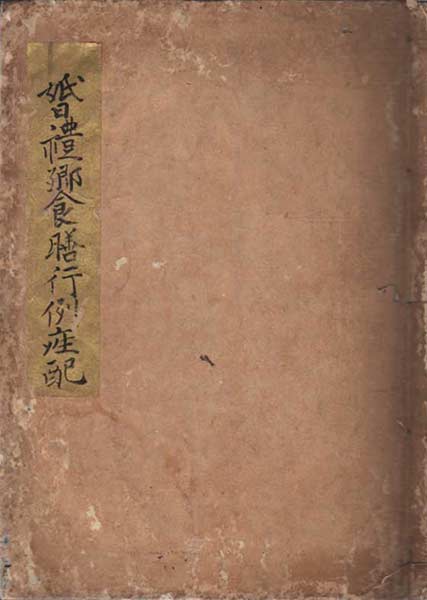 婚禮鄉食膳行例座配